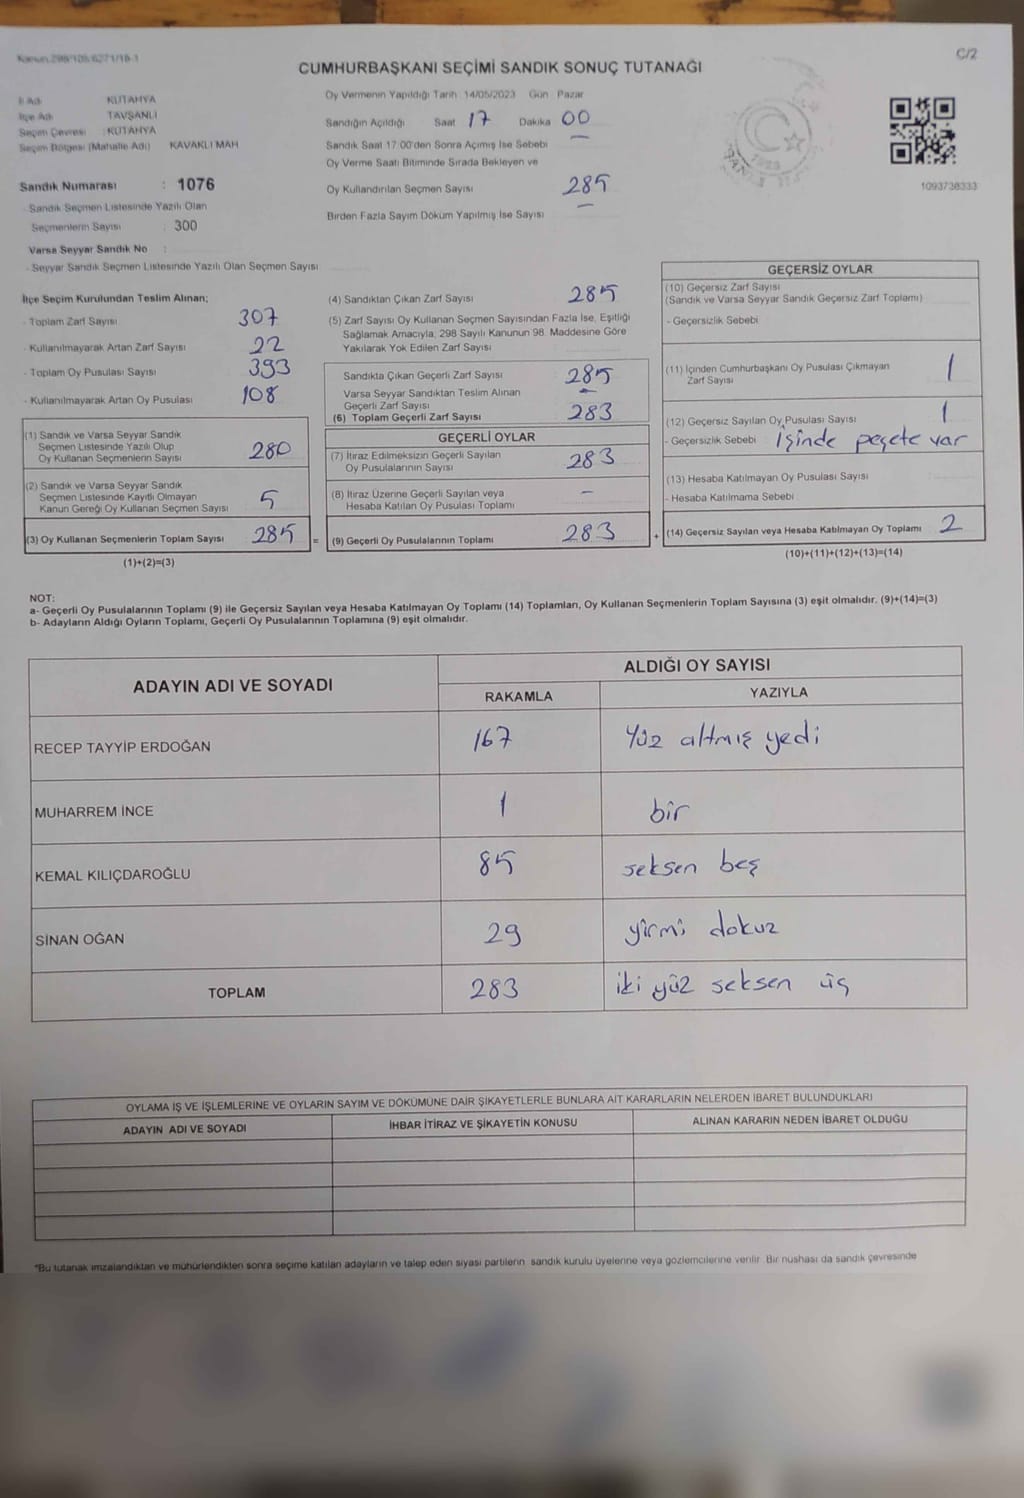 Kanun:298/105;6271/18-1
C/2
CUMHURBAŞKANI SEÇİMİ SANDIK SONUÇ TUTANAĞI
İl Adı KÜTAHYA
İlçe Adı TAVŞANLI
Seçim Çevresi : KÜTAHYA
Seçim Bölgesi (Mahalle Adı) KAVAKLI MAH
Sandık Numarası : 1076
- Sandık Seçmen Listesinde Yazılı Olan
Seçmenlerin Sayısı : 300
Varsa Seyyar Sandık No :
- Seyyar Sandık Seçmen Listesinde Yazılı Olan Seçmen Sayısı
Oy Vermenin Yapıldığı Tarih 14/05/2023 Gün Pazar
Sandığın Açıldığı Saat 17 Dakika 00
Sandık Saat 17 00'den Sonra Açımış İse Sebebi
Oy Verme Saati Bitiminde Sırada Bekleyen ve
Oy Kullandırılan Seçmen Sayısı 285
Birden Fazla Sayım Döküm Yapılmış İse Sayısı
1093738333
İlçe Seçim Kurulundan Teslim Alınan;
- Toplam Zarf Sayısı 307
- Kullanılmayarak Artan Zarf Sayısı 22
- Toplam Oy Pusulası Sayısı 393
- Kullanılmayarak Artan Oy Pusulası 108
(1) Sandık ve Varsa Seyyar Sandık
Seçmen Listesinde Yazılı Olup
Oy Kullanan Seçmenlerin Sayısı 280
(2) Sandık ve Varsa Seyyar Sandık
Seçmen Listesinde Kayıtlı Olmayan
Kanun Gereği Oy Kullanan Seçmen Sayısı 5
(3) Oy Kullanan Seçmenlerin Toplam Sayısı 285 =
(1)+(2)=(3)
(4) Sandıktan Çıkan Zarf Sayısı 285
(5) Zarf Sayısı Oy Kullanan Seçmen Sayısından Fazla İse, Eşitliği
Sağlamak Amacıyla, 298 Sayılı Kanunun 98. Maddesine Göre
Yakılarak Yok Edilen Zarf Sayısı
Sandıkta Çıkan Geçerli Zarf Sayısı 285
Varsa Seyyar Sandıktan Teslim Alınan
Geçerli Zarf Sayısı -
(6) Toplam Geçerli Zarf Sayısı 283
GEÇERLİ OYLAR
(7) İtiraz Edilmeksizin Geçerli Sayılan
Oy Pusulalarının Sayısı 283
(8) İtiraz Üzerine Geçerli Sayılan veya
Hesaba Katılan Oy Pusulası Toplamı -
(9) Geçerli Oy Pusulalarının Toplamı 283 +
GEÇERSİZ OYLAR
(10) Geçersiz Zarf Sayısı
(Sandık ve Varsa Seyyar Sandık Geçersiz Zarf Toplamı)
- Geçersizlik Sebebi
(11) İçinden Cumhurbaşkanı Oy Pusulası Çıkmayan
Zarf Sayısı 1
(12) Geçersiz Sayılan Oy Pusulası Sayısı 1
- Geçersizlik Sebebi İçinde peçete var
(13) Hesaba Katılmayan Oy Pusulası Sayısı
- Hesaba Katılmama Sebebi
(14) Geçersiz Sayılan veya Hesaba Katılmayan Oy Toplamı 2
(10)+(11)+(12)+(13)=(14)
NOT:
a- Geçerli Oy Pusulalarının Toplamı (9) ile Geçersiz Sayılan veya Hesaba Katılmayan Oy Toplamı (14) Toplamları, Oy Kullanan Seçmenlerin Toplam Sayısına (3) eşit olmalıdır. (9)+(14)=(3)
b- Adayların Aldığı Oyların Toplamı, Geçerli Oy Pusulalarının Toplamına (9) eşit olmalıdır.
ADAYIN ADI VE SOYADI ALDIĞI OY SAYISI
RAKAMLA YAZIYLA
RECEP TAYYİP ERDOĞAN 167 Yüz altmış yedi
MUHARREM İNCE 1 bir
KEMAL KILIÇDAROĞLU 85 seksen beş
SİNAN OĞAN 29 yirmi dokuz
TOPLAM 283 iki yüz seksen üç
OYLAMA İŞ VE İŞLEMLERİNE VE OYLARIN SAYIM VE DÖKÜMÜNE DAİR ŞİKAYETLERLE BUNLARA AİT KARARLARIN NELERDEN İBARET BULUNDUKLARI
ADAYIN ADI VE SOYADI İHBAR İTİRAZ VE ŞİKAYETİN KONUSU ALINAN KARARIN NEDEN İBARET OLDUĞU
*Bu tutanak imzalandıktan ve mühürlendikten sonra seçime katılan adayların ve talep eden siyasi partilerin sandık kurulu üyelerine veya gözlemcilerine verilir. Bir nüshası da sandık çevresinde